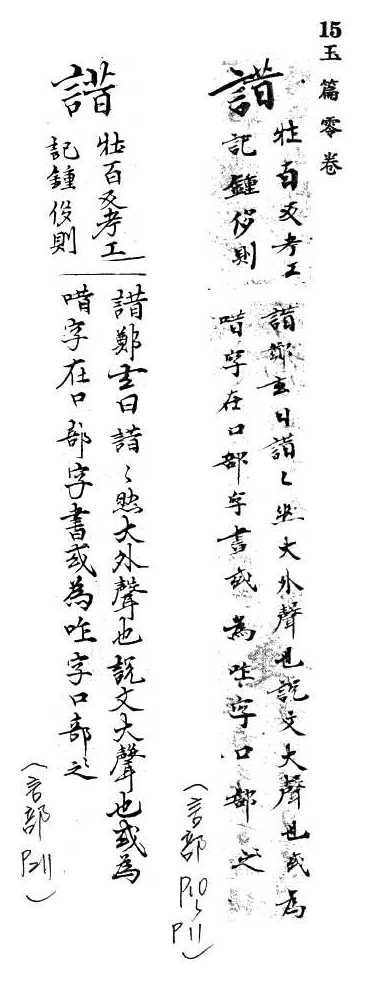 15玉篇零卷
諎
壮百反考工
記鍾侈則
諎鄭玄曰諎〻然大外聲也説文大聲也或為
唶字在口部字書或為咋字口部之
(言部P10〜P11)
諎
壮百反考工
記鍾侈則
諎鄭玄曰諎〻然大外聲也説文大聲也或為
唶字在口部字書或為咋字口部之
(言部P211)